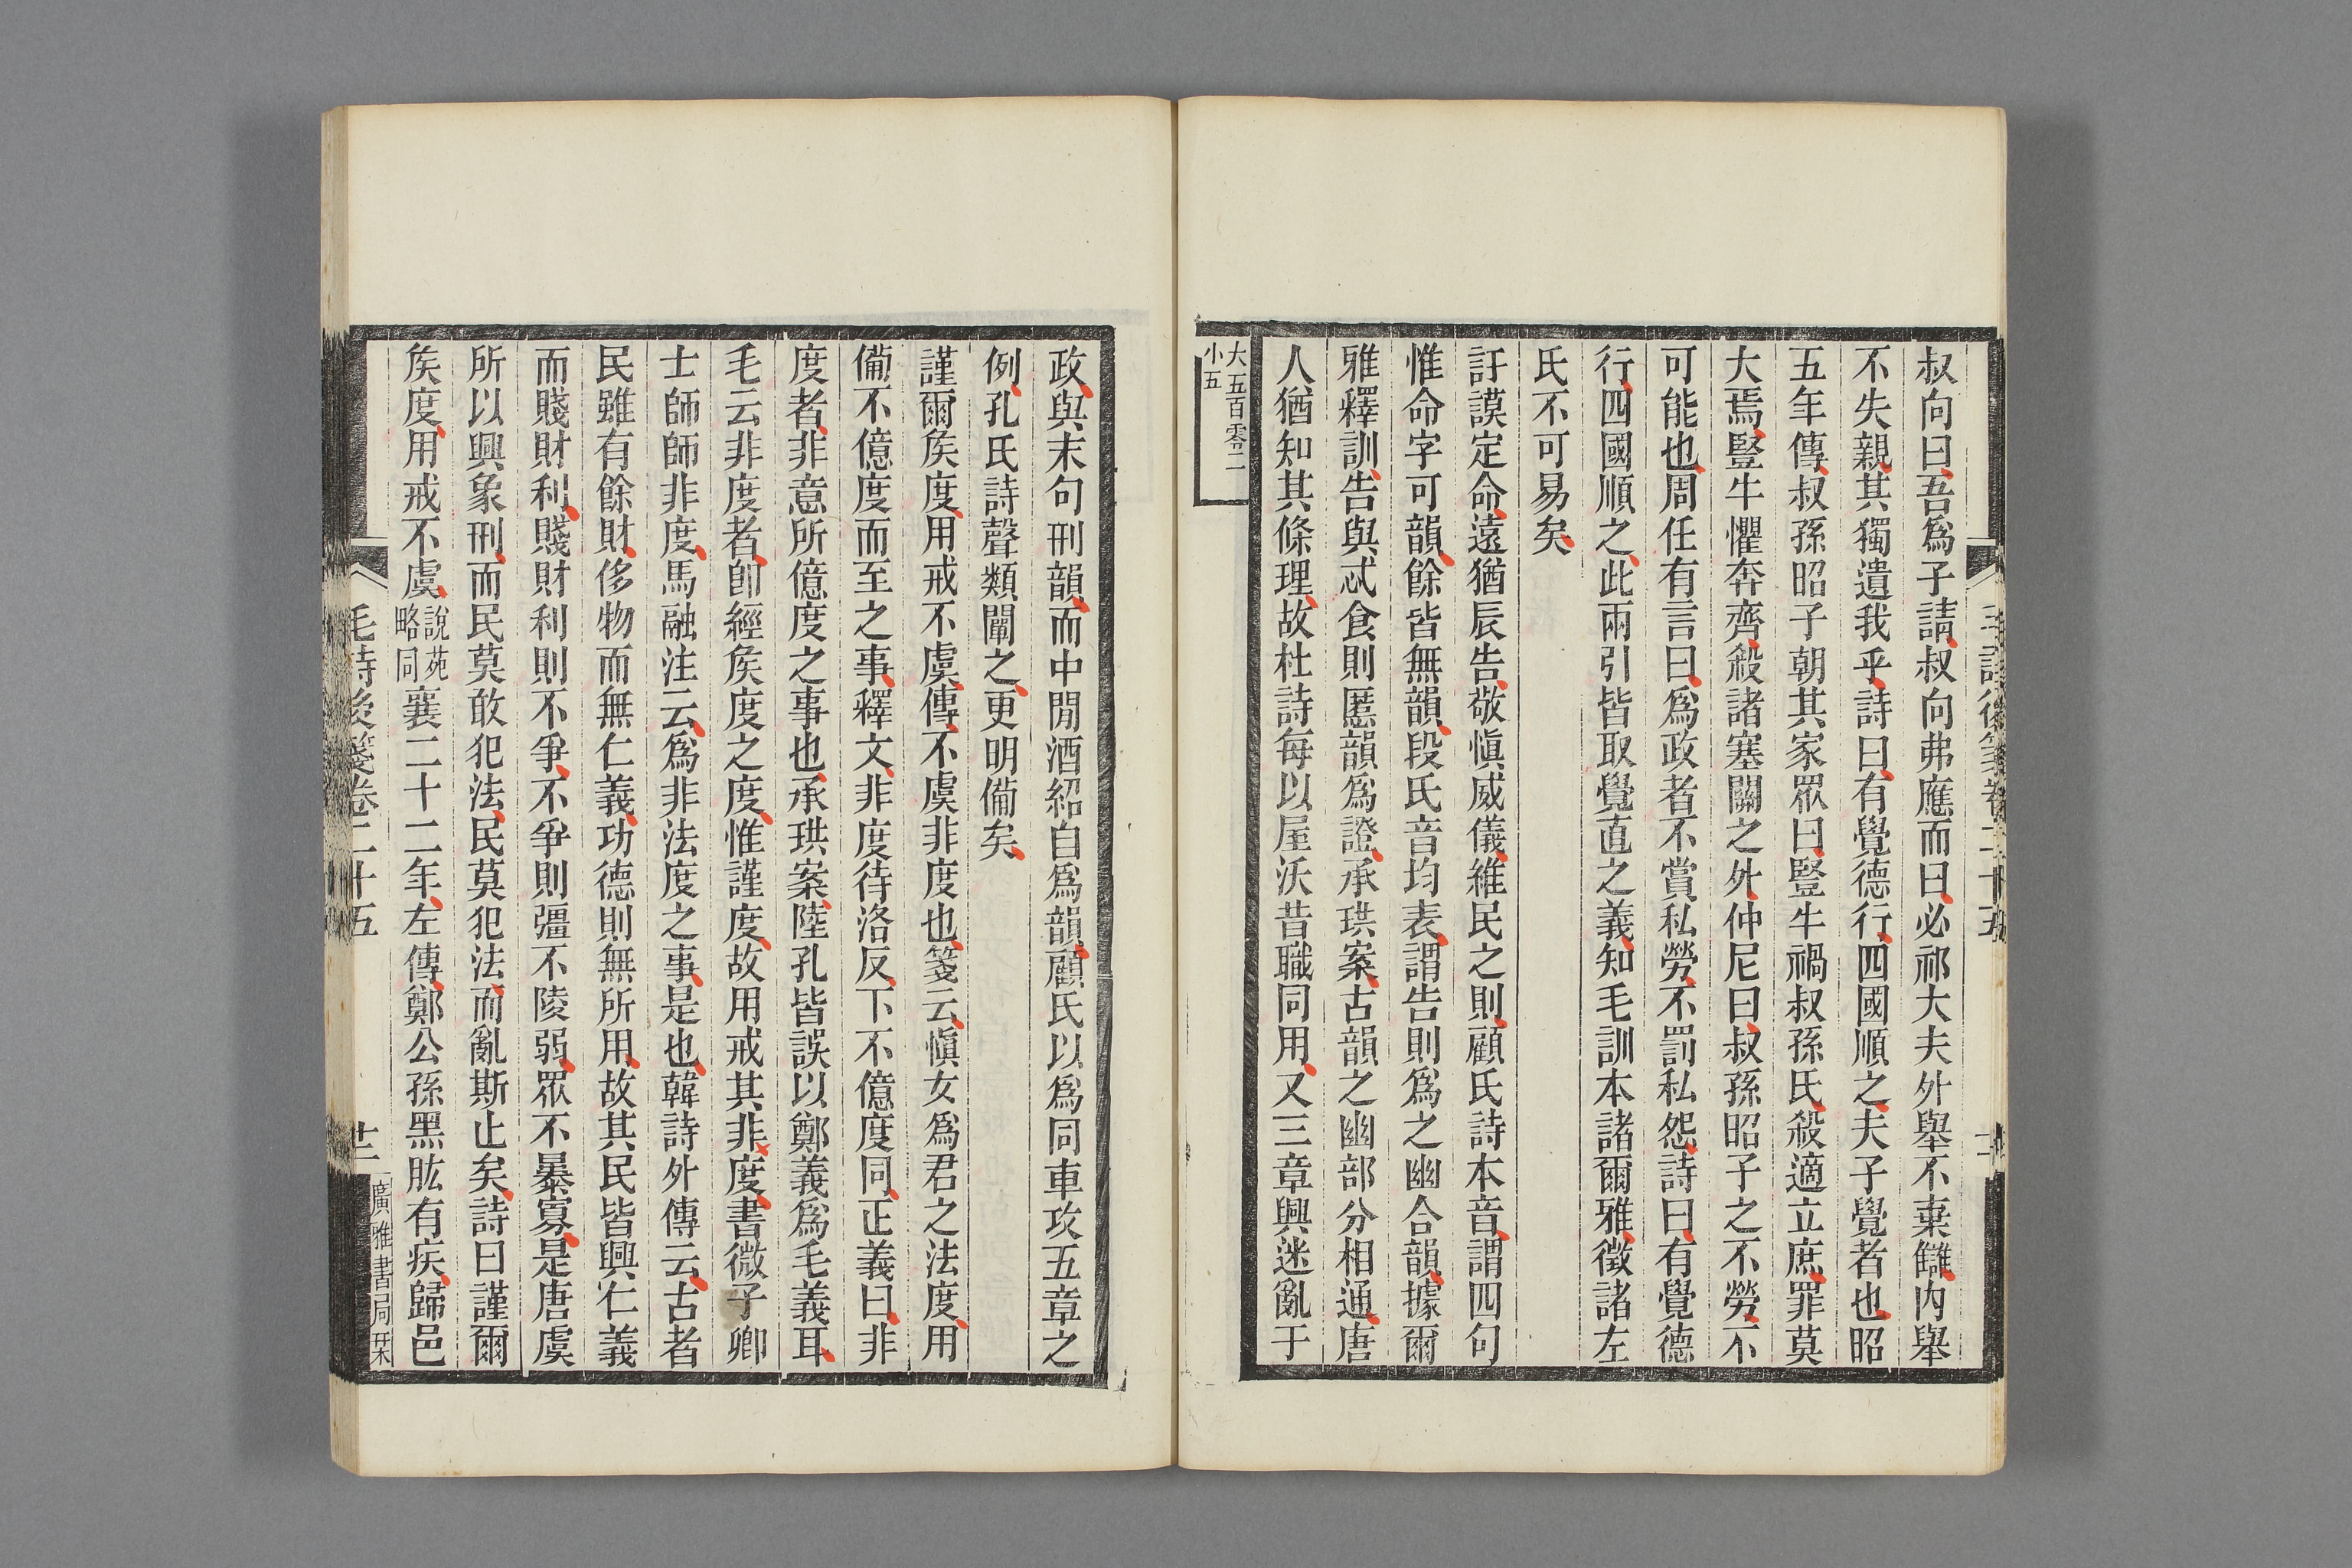 叔向曰吾爲子請叔向弗應而曰必祁大夫外舉不棄讎內舉
不失親其獨遺我乎詩曰有覺德行四國順之夫子覺者也昭
五年傳叔孫昭子朝其家眾曰豎牛禍叔孫氏殺適立庶罪莫
大焉豎牛懼奔齊殺諸塞關之外仲尼曰叔孫昭子之不勞不
可能也周任有言曰爲政者不賞私勞不罰私怨詩曰有覺德
行四國順之此兩引皆取覺直之義知毛訓本諸爾雅徵諸左
氏不可易矣
訏謨定命遠猶辰告敬愼威儀維民之則顧氏詩本音謂四句
惟命字可韻餘皆無韻段氏音均表謂告則爲之幽合韻據爾
雅釋訓告與忒食則慝韻爲證承珙案古韻之幽部分相通唐
人猶知其條理故杜詩每以屋沃昔職同用又三章興迷亂于
大五百零二
小五
政與末句刑韻而中閒酒紹自爲韻顧氏以爲同車攻五章之
例孔氏詩聲類闡之更明備矣
謹爾矦度用戒不虞傳不虞非度也箋云愼女爲君之法度用
備不億度而至之事釋文非度待洛反下不億度同正義曰非
度者非意所億度之事也承珙案陸孔皆誤以鄭義爲毛義耳
毛云非度者卽經矦度之度惟謹度故用戒其非度書微子卿
士師師非度馬融注云爲非法度之事是也韓詩外傳云古者
民雖有餘財侈物而無仁義功德則無所用故其民皆興仁義
而賤財利賤財利則不爭不爭則彊不陵弱眾不暴寡是唐虞
所以興象刑而民莫敢犯法民莫犯法而亂斯止矣詩曰謹爾
矦度用戒不虞說苑略同襄二十二年左傳鄭公孫黑肱有疾歸邑
毛詩後箋卷二十五 廿二 廣雅書局栞